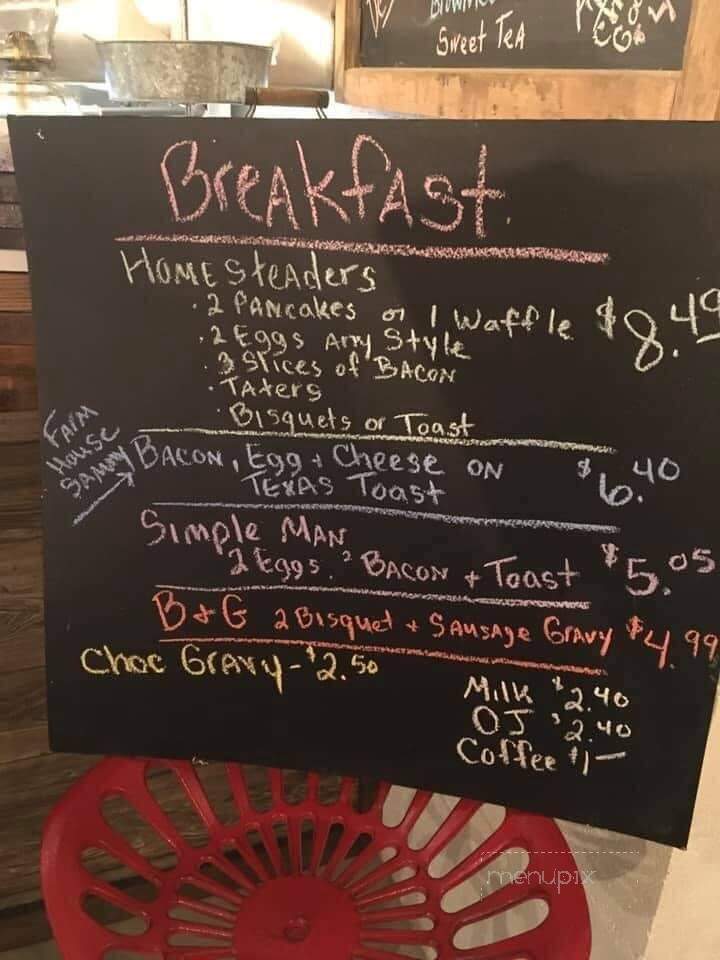 Sweet Tea
Breakfast.
Homesteaders
· 2 Pancakes or 1 Waffle $8.49
· 2 Eggs Any Style
· 3 Slices of Bacon
· Taters
· Bisquets or Toast
Farm
House
Sammy
Bacon, Egg + Cheese on $6.40
Texas Toast
Simple Man
2 Eggs, 2 Bacon + Toast $5.05
B+G 2 Bisquet + Sausage Gravy $4.99
Choc Gravy - $2.50
Milk $2.40
OJ $2.40
Coffee $1-
menupix